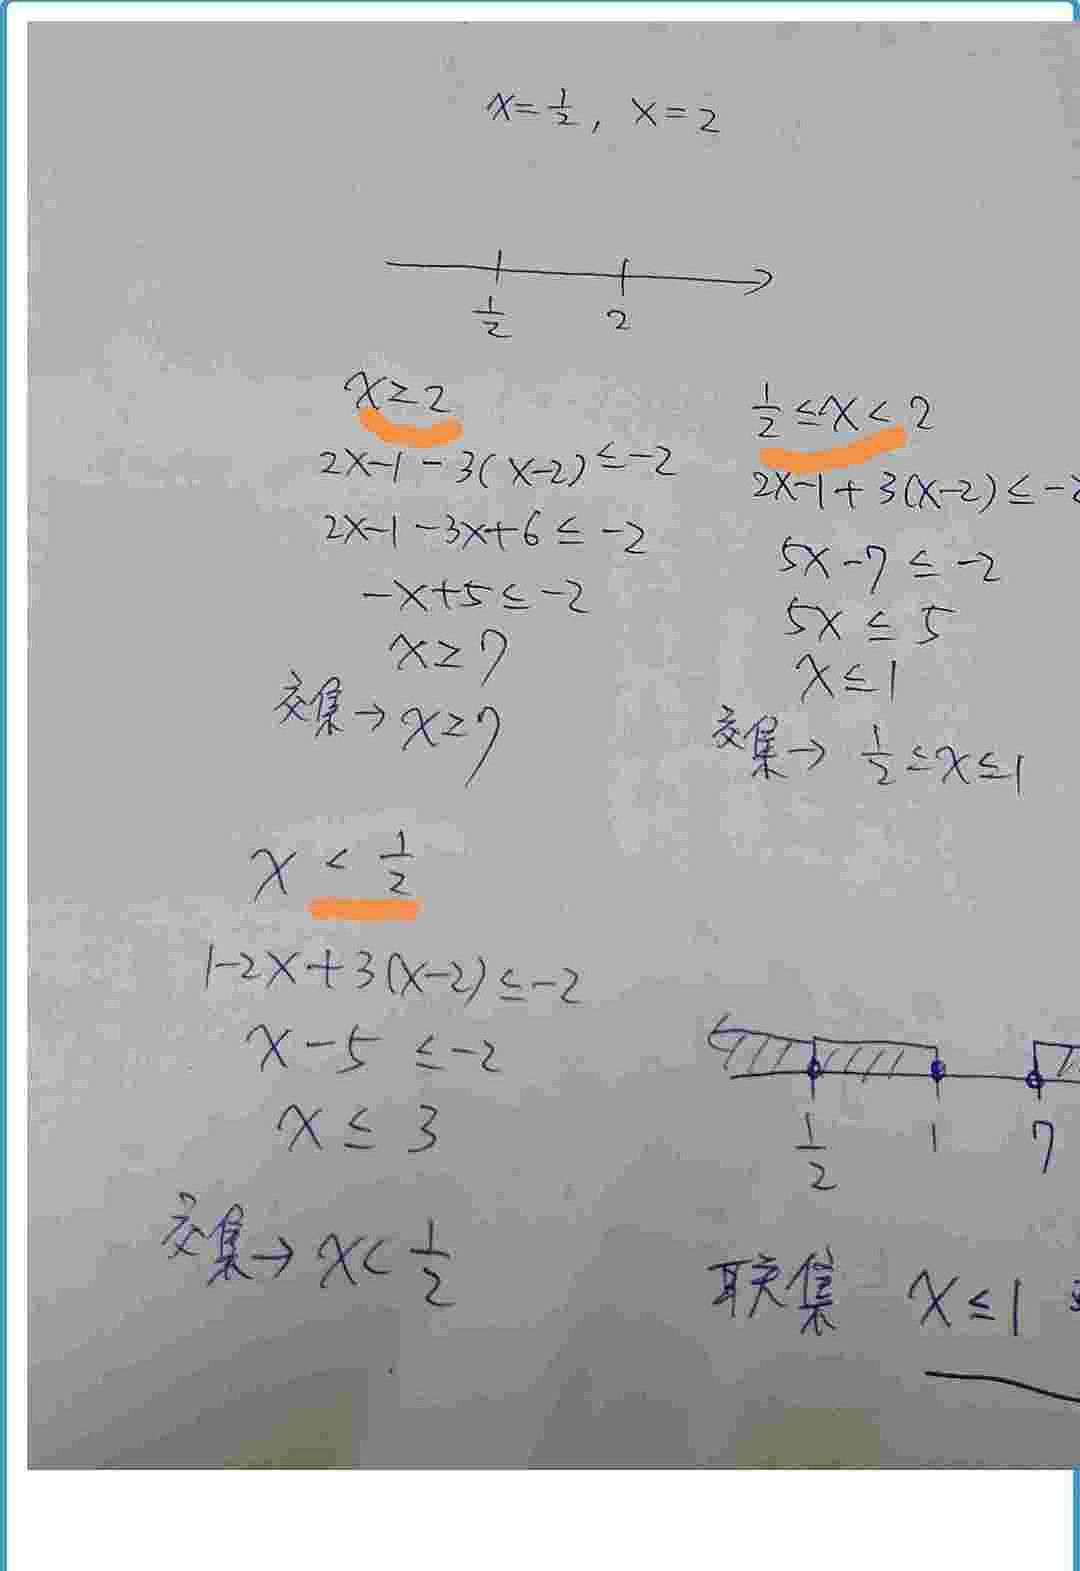 x=1/2, x=2
1/2 2
x≥2
2x-1-3(x-2)≤-2
2x-1-3x+6≤-2
-x+5≤-2
x≥7
交集→x≥7
1/2≤x<2
2x-1+3(x-2)≤-2
5x-7≤-2
5x≤5
x≤1
交集→1/2≤x≤1
x<1/2
1-2x+3(x-2)≤-2
x-5≤-2
x≤3
交集→x<1/2
1/2 1 7
联集 x≤1